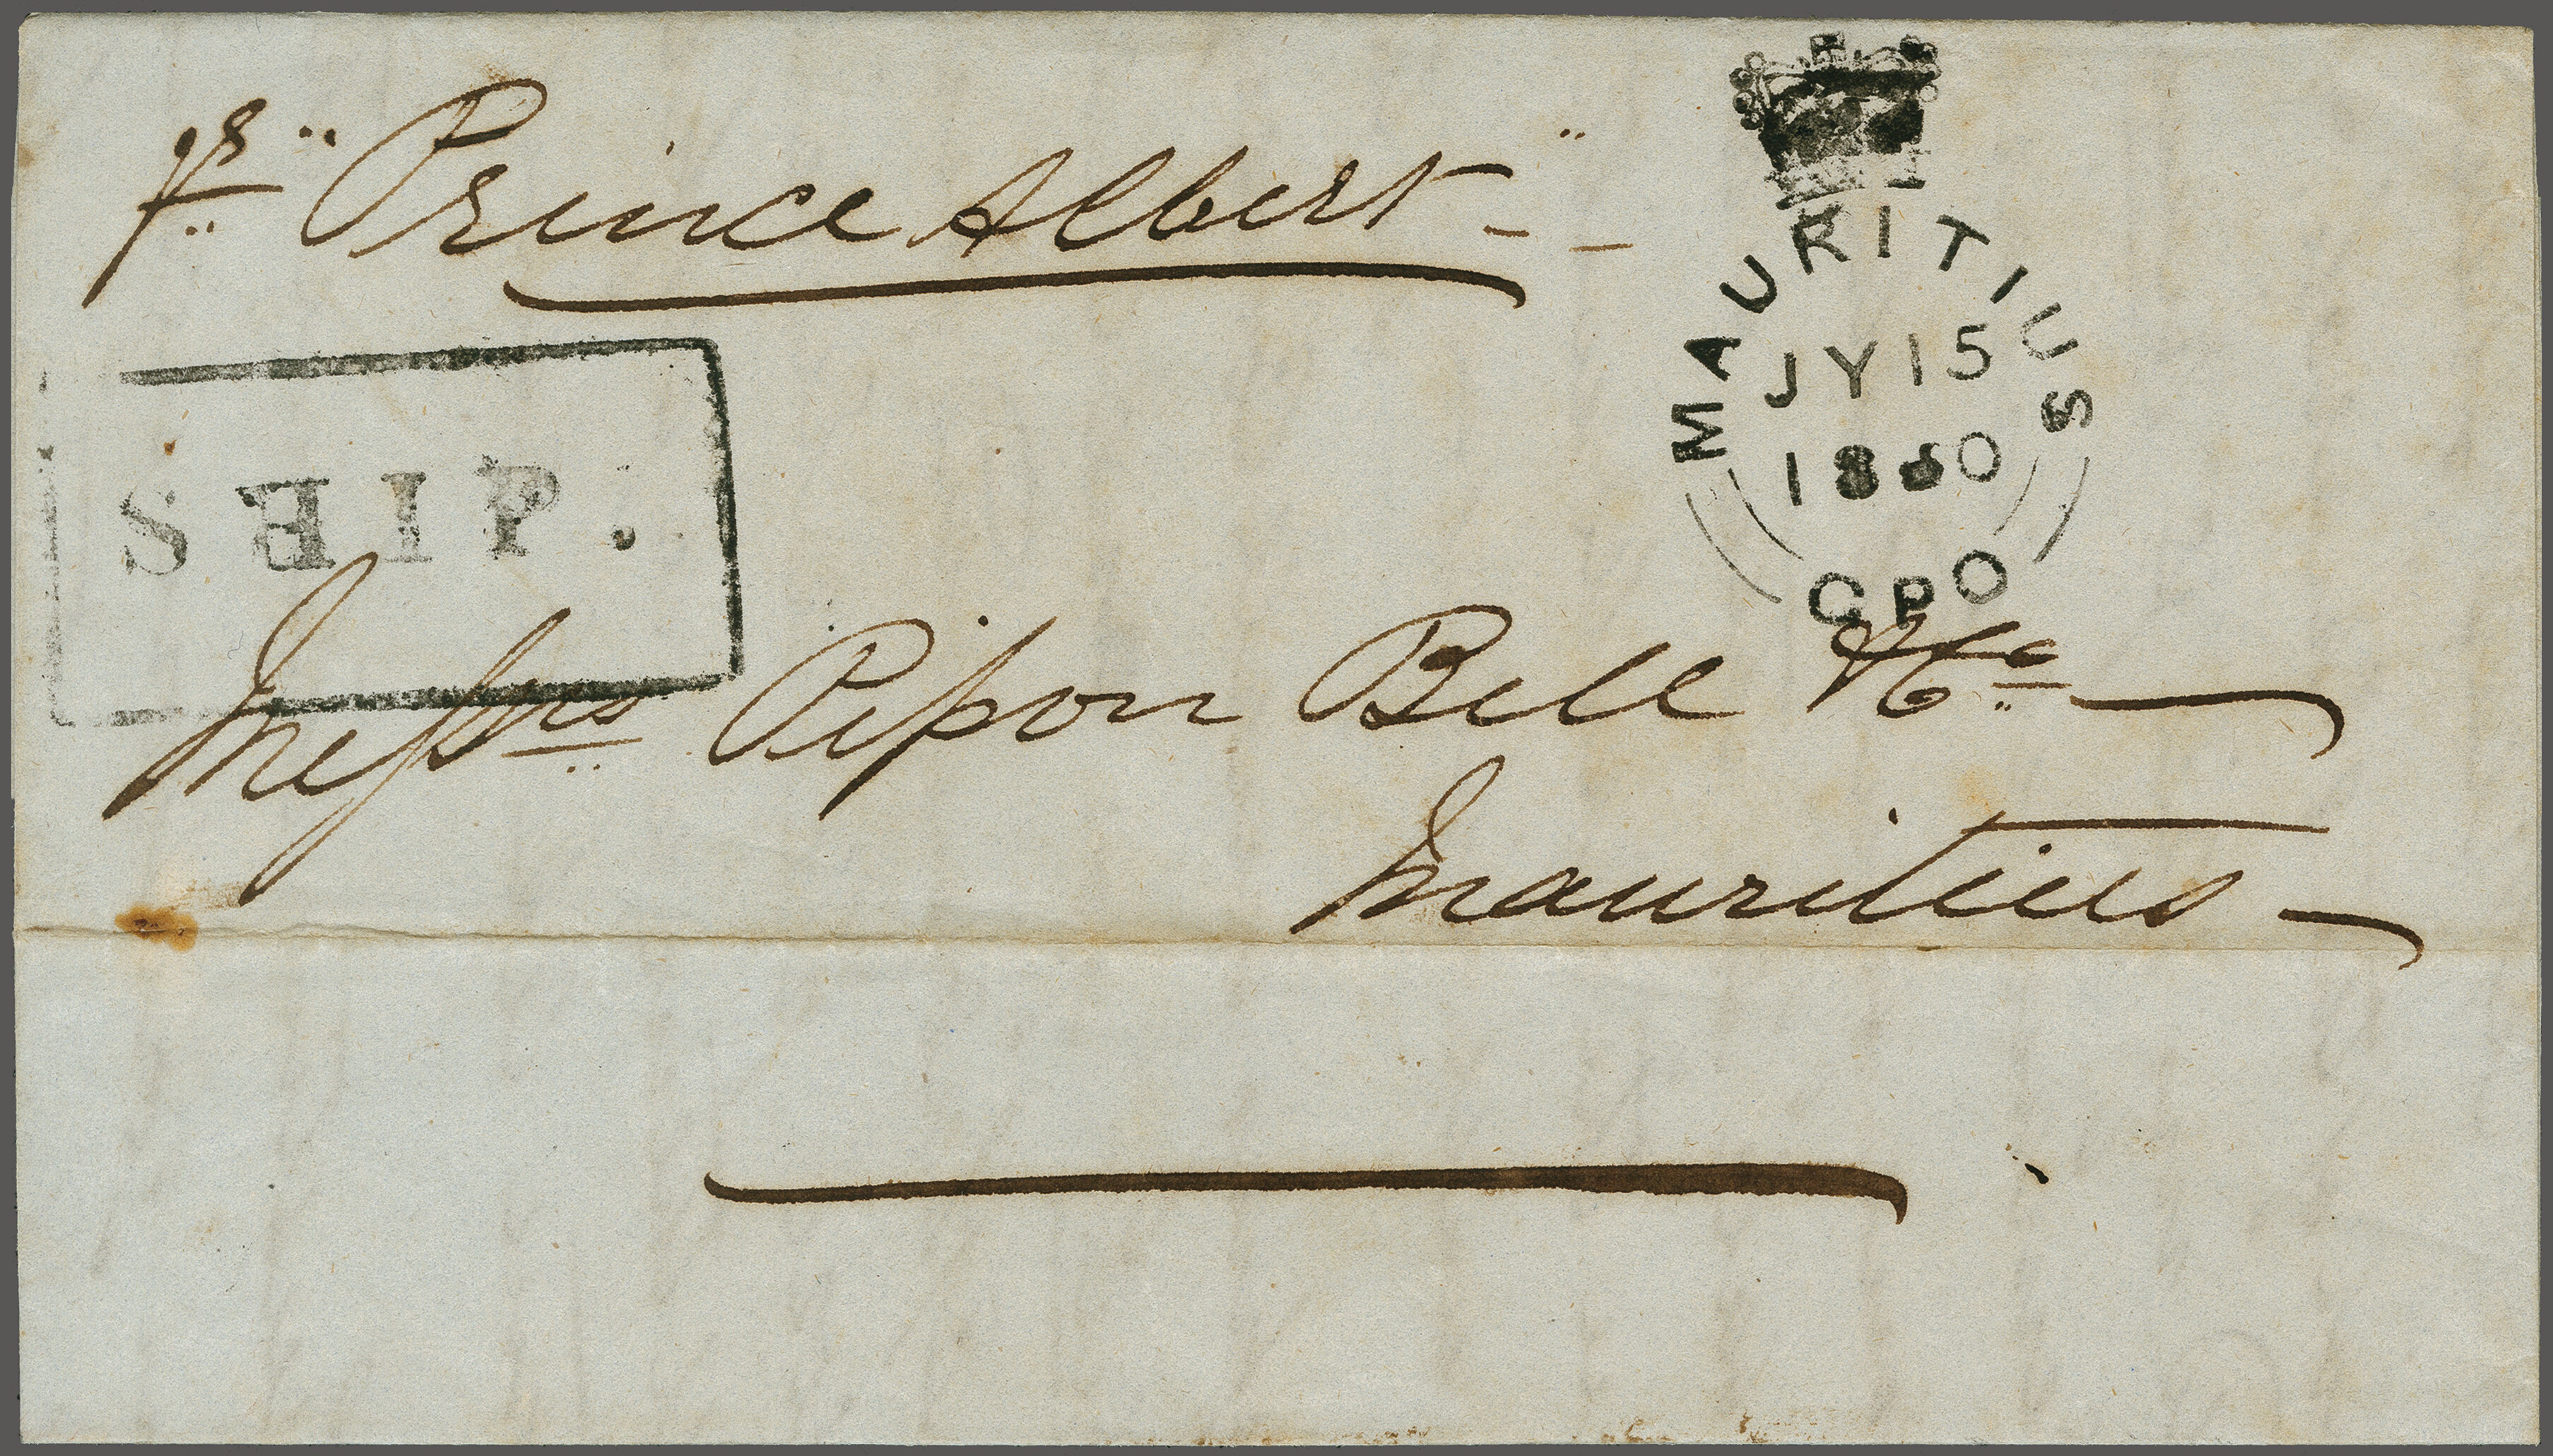 pr "Prince Albert"
MAURITIUS
JY 15
1850
GPO
SHIP.
Messrs Pipon Bell & Co
Mauritius